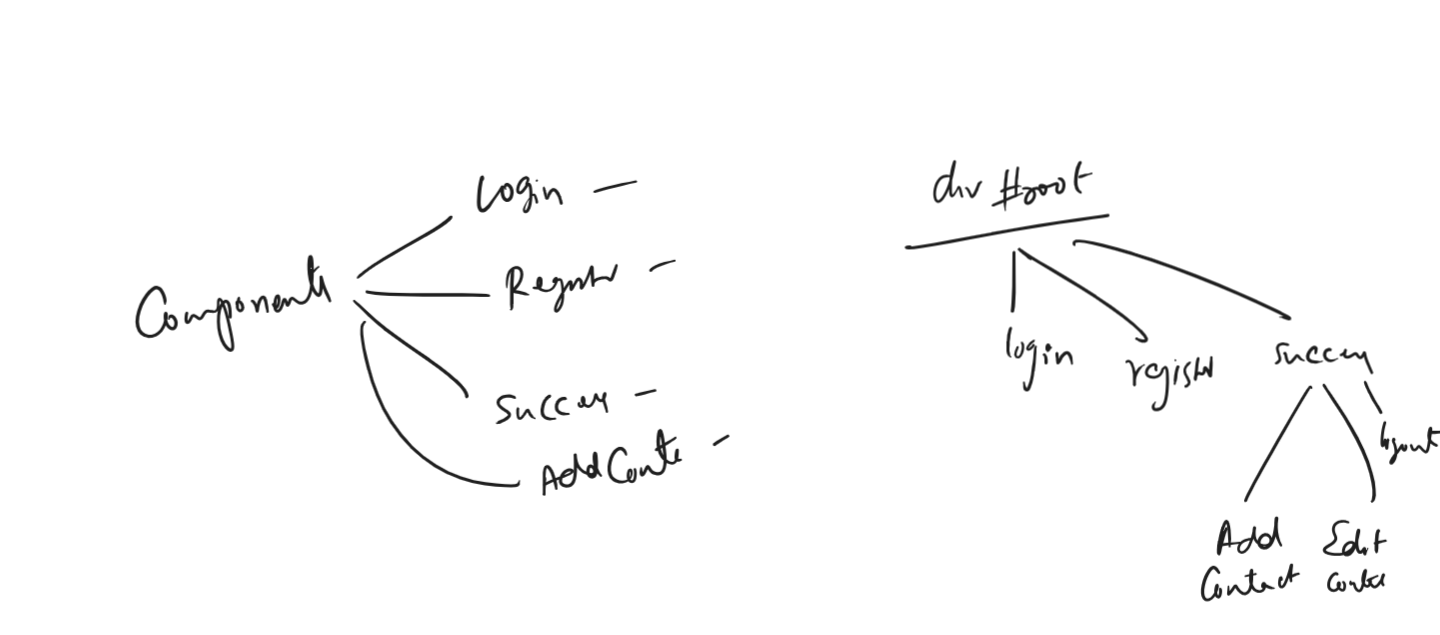 Components
Login
Register
Success
Add Conta
div #root
login
register
success
logout
Add
Contact
Edit